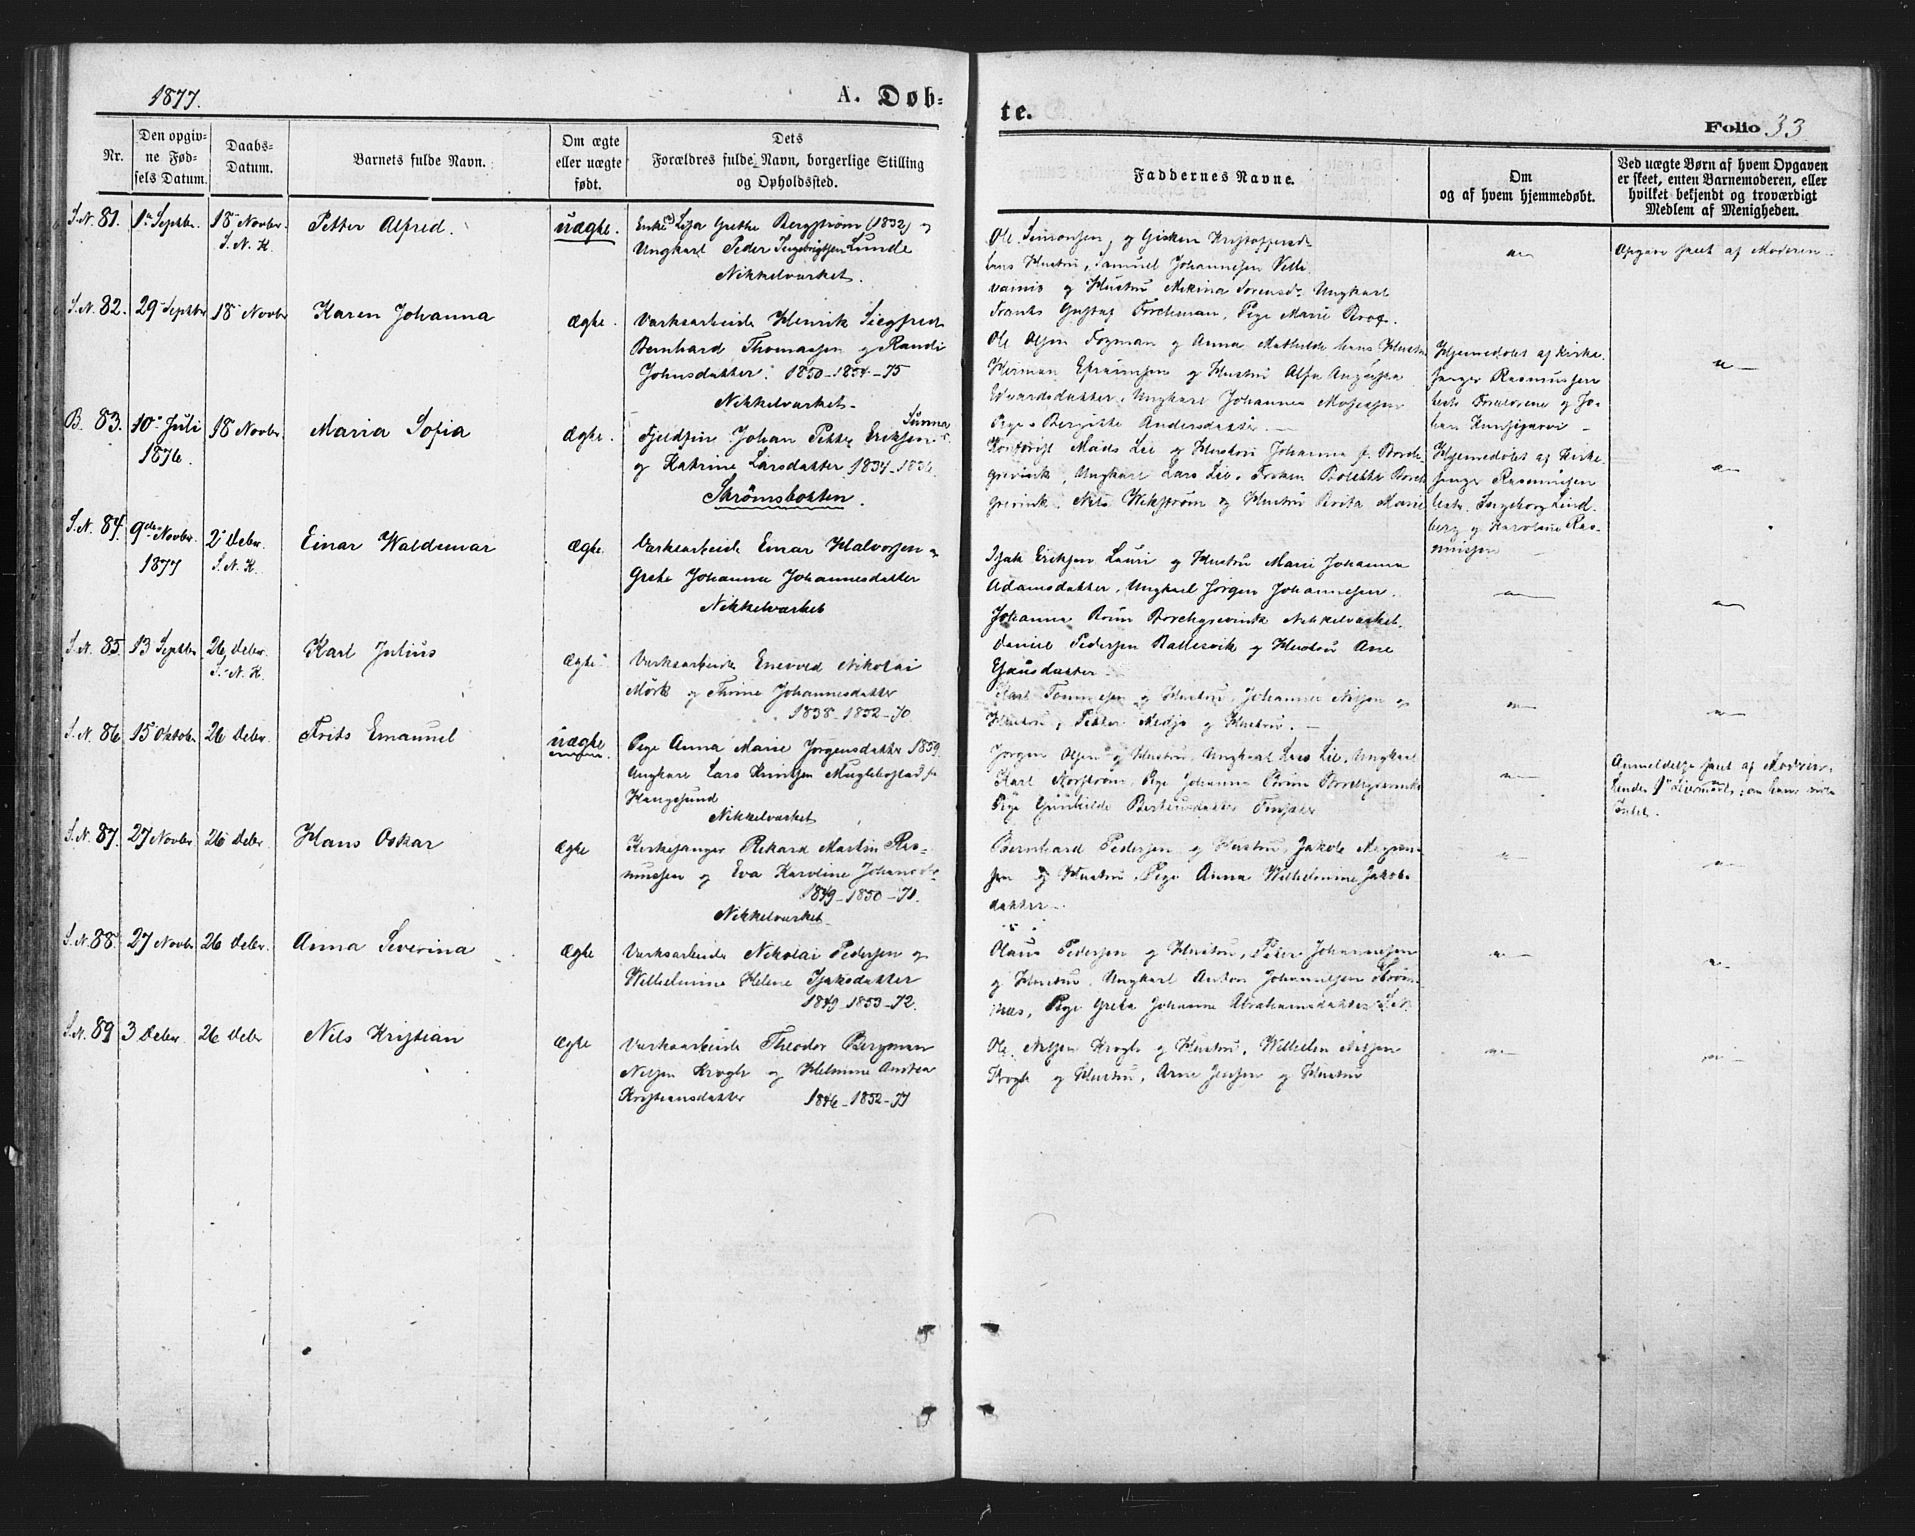 1877.
A. Døb-
te.
Folio 33
Nr.
Den opgiv-
ne Fød-
sels Datum.
Daabs-
Datum.
Barnets fulde Navn.
Om ægte
eller uægte
født.
Dets
Forældres fulde Navn, borgerlige Stilling
og Opholdssted.
Faddernes Navne.
Om
og af hvem hjemmedøbt.
Ved uægte Børn af hvem Opgaven
er skeet, enten Barnemoderen, eller
hvilket bekjendt og troværdigt
Medlem af Menigheden.
S.N. 81.
1ste Septbr.
18 Novbr.
S.N.K.
Petter Alfred.
uægte.
Enke Lisa Grethe Bergstrøm (1832) og
Ungkarl Peder Ingebrigtsen Lunde
Nikkelværket.
Ole Simonsen, og Gisken Kristoffersd
hans Hustru, Samuel Johannesen
og Hustru Mekina Sorensdr Ungkarl
Frants Gustaf Forchman, Pige Marie
Opgave skeet af Moderen.
S.N. 82.
29 Septbr
18 Novbr
Karen Johanna
Ægte.
Værksarbeide Henrik Siegfred
Bernhard Thomassen og Randi
Johnsdatter. 1850-1854-75
Nikkelværket.
Ole Olsen Fogman og Anna Mathilde hans Hustru
Herman Efraimsen og Hustru Alfa Augusta
Edvardsdatter, Ungkarl Johannes Mosesen
Pige Bergitte Andersdatter.
Hjemmedøbt af Kirke-
sanger Rasmussen
Forældrene og Jo-
han
B. 83.
10de Juli
1876.
18 Novbr.
Maria Sofia
Ægte.
Fjeldfin Johan Petter Eriksen Sunna
og Katrine Larsdatter 1834-1836
Strømsbotten.
Mads Lie og Hustru Johanna f. Borch
grevink, Ungkarl Lars Lie, Frøken Bolette Borch
grevink. Nils Wikstrøm og Hustru Berita Marie
Hjemmedøbt af Kirke-
sanger Rasmussen
Ingeborg Lind
berg og Karoline Ras-
mussen
S.N. 84.
9de Novbr.
1877
2 Debr.
S.N.K.
Einar Waldemar
Ægte.
Værksarbeide Einar Halvorsen og
Grete Johanna Johannesdatter
Nikkelværket
Isak Eriksen Lauri og Hustru Marie Johanna
Adamsdatter, Ungkarl Jørgen Johannesen.
Johanna Brun Borchgrevink Nikkelværket.
S.N. 85.
13 Septbr
26 Debr.
S.N.K.
Karl Julius
Ægte
Værksarbeide Enevold Nikolai
Mørk og Trine Johannesdatter
1838-1852-70.
Daniel Pedersen Ballesvik og Hustru Ane
Karl Tommesen og Hustru, Johannes Nilsen og
Hustru, Petter Medjo og Hustru.
S.N. 86
15 Oktober
26 Debr.
Frits Emanuel
uægte
Pige Anna Marie Jørgensdatter 1859.
Ungkarl Lars Knutsen
Nikkelværket
Jørgen Olsen og Hustru, Ungkarl Lars Lie, Ungkarl
Karl Norstrøm, Pige Johanna Brun Borchgrevink
Pige Gunhilde
Anmeldelse skeet af Moderen.
S.N. 87.
27 Novbr.
26 Debr.
Hans Oskar
Ægte
Kirkesanger Rikard Martin Ras-
mussen og Eva Karoline Johansdr
1849-1850-71.
Nikkelværket
Bernhard Pedersen og Hustru, Jakob
sen og Hustru, Pige Anna Wilhelmine Jakobs
datter.
S.N. 88.
27 Novbr
26 Debr.
Anna Severina
Ægte
Værksarbeide Nikolai Pedersen og
Wilhelmine Helene Isaksdatter
1849-1853-72.
Olaus Pedersen og Hustru, Peter Johannesen
og Hustru, Ungkarl Anton Johannesen Strøm-
næs, Pige Greta Johanne Abrahamsdatter S.N.
S.N. 89
3 Debr
26 Debr
Nils Kristian
Ægte
Værksarbeide Theodor Bergman
Nilsen Krogh og Helmine Andrea
Kristiansdatter 1846-1852-77
Ole Nilsen Krogh og Hustru, Wilhelm Nilsen
Krogh og Hustru, Arne Jensen og Hustru